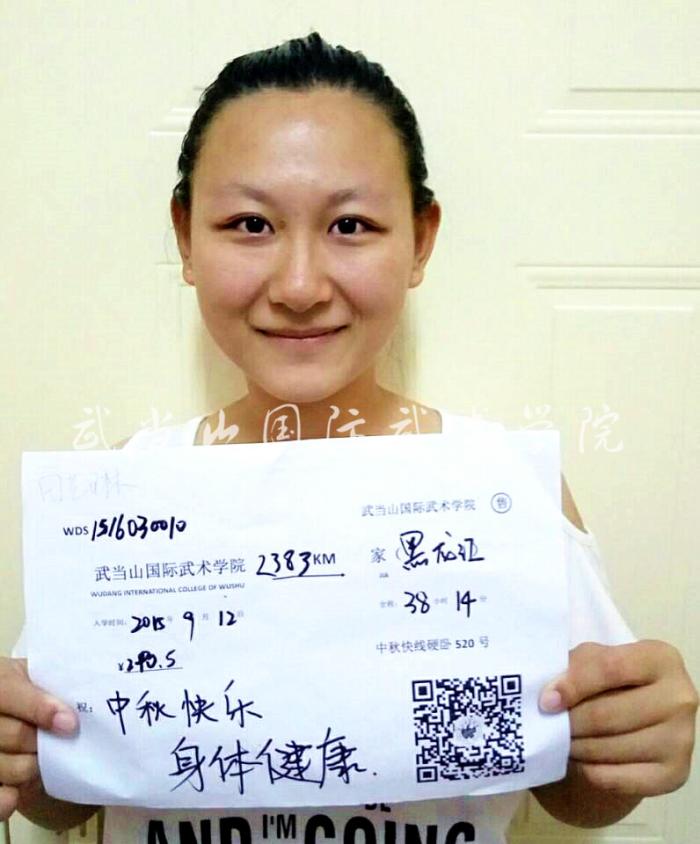 武当山国际武术学院
WDS 1516030010
武当山国际武术学院 售
武当山国际武术学院 2383KM 家(黑龙江
WUDANG INTERNATIONAL COLLEGE OF WUSHU
入学时间: 2015年 9月 12日
全程: 38小时 14分
中秋快线硬卧 520 号
祝: 中秋快乐
身体健康.
AND I'M GOING